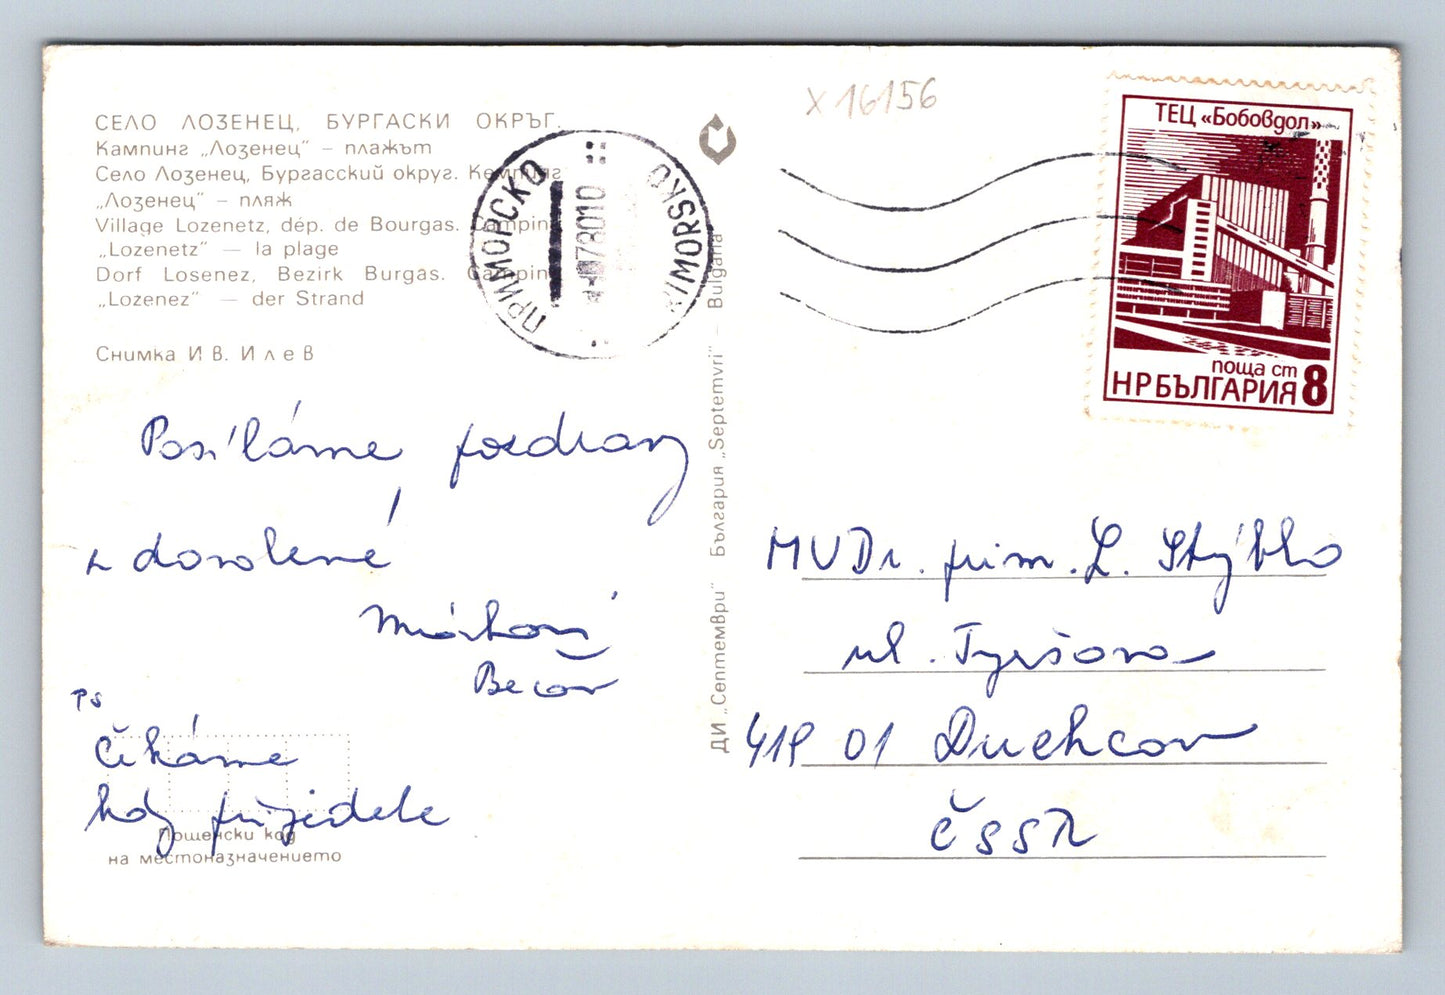 СЕЛО ЛОЗЕНЕЦ, БУРГАСКИ ОКРЪГ.
Кампинг „Лозенец“ – плажът
Село Лозенец, Бургасский округ. Кемпинг
„Лозенец“ – пляж
Village Lozenetz, dép. de Bourgas. Camping
„Lozenetz“ — la plage
Dorf Losenez, Bezirk Burgas. Camping
„Lozenez“ — der Strand
Снимка Ив. Илев
Posíláme pozdravy
z dovolené
Márkovi
Bečov
PS
Čekáme
kdy přijedete
Пощенски код
на местоназначението
ПРИМОРСКО
PRIMORSKO
ДИ „Септември“ България „Septemvri“ — Bulgaria
x 16156
ТЕЦ «Бобовдол»
поща ст 8
НР БЪЛГАРИЯ
MVDr. prim. L. Stýblo
ul. Tyršova
419 01 Duchcov
ČSSR